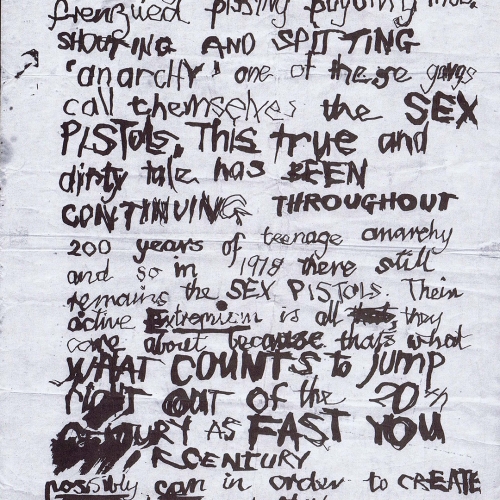 frenzied pissing pogoing mob.
SHOUTING AND SPITTING
'anarchy' one of these gangs
call themselves the SEX
PISTOLS. This true and
dirty tale has BEEN
CONTINUING THROUGHOUT
200 years of teenage anarchy
and so in 1978 there still
remains the SEX PISTOLS. Their
active extremism is all they
care about because that's what
WHAT COUNTS to JUMP
RIGHT OUT OF the 20th
CENTURY AS FAST YOU
CENTURY
possibly can in order to CREATE